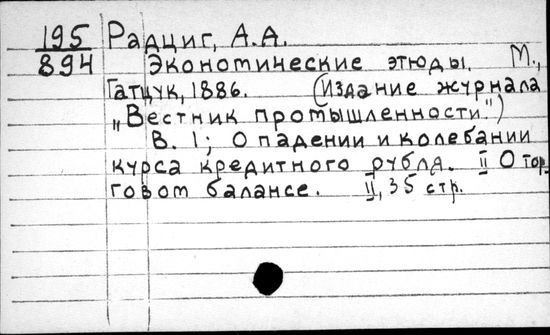 195 Радциг, А.А.
894 Экономические этюды. М.,
Гатцук, 1886. (Издание журнала
„Вестник промышленности".)
В. 1; О падении и колебании
курса кредитного рубля. II О тор-
говом балансе. II, 35 стр.